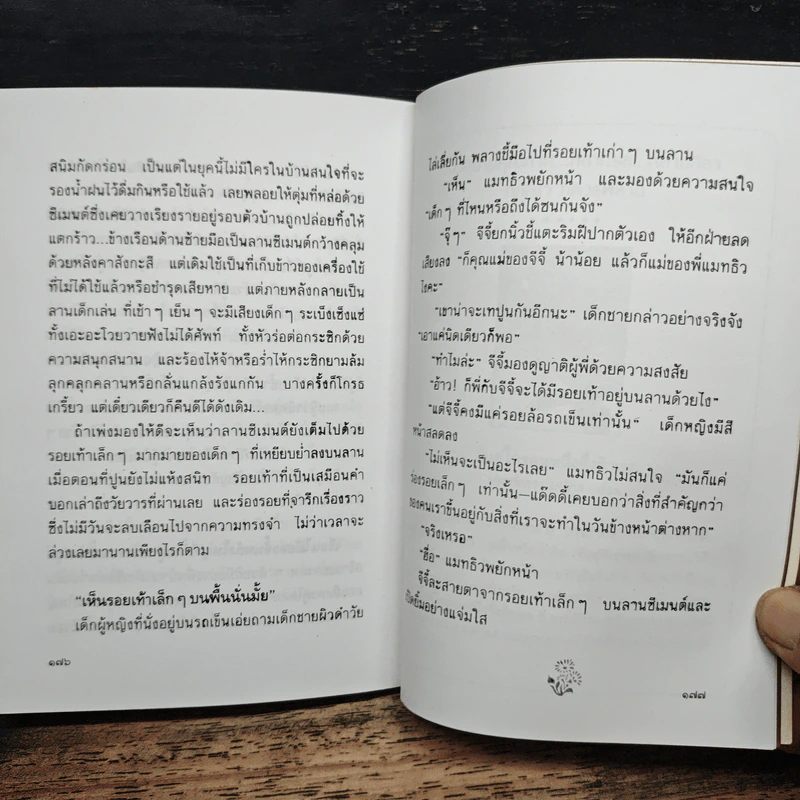 สนิมกัดกร่อน เป็นแต่ในยุคนี้ไม่มีใครในบ้านสนใจที่จะ
รองน้ำฝนไว้ดื่มกินหรือใช้แล้ว เลยพลอยให้ตุ่มที่หล่อด้วย
ซีเมนต์ซึ่งเคยวางเรียงรายอยู่รอบตัวบ้านถูกปล่อยทิ้งให้
แตกร้าว...ข้างเรือนด้านซ้ายมือเป็นลานซีเมนต์กว้างคลุม
ด้วยหลังคาสังกะสี แต่เดิมใช้เป็นที่เก็บข้าวของเครื่องใช้
ที่ไม่ได้ใช้แล้วหรือชำรุดเสียหาย แต่ภายหลังกลายเป็น
ลานเด็กเล่น ที่เช้า ๆ เย็น ๆ จะมีเสียงเด็ก ๆ ระเบ็งเซ็งแซ่
ทั้งเอะอะโวยวายฟังไม่ได้ศัพท์ ทั้งหัวร่อต่อกระซิกด้วย
ความสนุกสนาน และร้องไห้จ้าหรือร่ำไห้กระซิกยามล้ม
ลุกคลุกคลานหรือกลั่นแกล้งรังแกกัน บางครั้งก็โกรธ
เกรี้ยว แต่เดี๋ยวเดียวก็คืนดีได้ดังเดิม...
ถ้าเพ่งมองให้ดีจะเห็นว่าลานซีเมนต์ยังเต็มไปด้วย
รอยเท้าเล็ก ๆ มากมายของเด็ก ๆ ที่เหยียบย่ำลงบนลาน
เมื่อตอนที่ปูนยังไม่แห้งสนิท รอยเท้าที่เป็นเสมือนคำ
บอกเล่าถึงวัยวารที่ผ่านเลย และร่องรอยที่จารึกเรื่องราว
ซึ่งไม่มีวันจะลบเลือนไปจากความทรงจำ ไม่ว่าเวลาจะ
ล่วงเลยมานานเพียงไรก็ตาม
“เห็นรอยเท้าเล็ก ๆ บนพื้นนั่นมั้ย”
เด็กผู้หญิงที่นั่งอยู่บนรถเข็นเอ่ยถามเด็กชายผิวดำวัย
๑๗๖
ไล่เลี่ยกัน พลางชี้มือไปที่รอยเท้าเก่า ๆ บนลาน
“เห็น” แมทธิวพยักหน้า และมองด้วยความสนใจ
“เด็ก ๆ ที่ไหนหรือถึงได้ซนกันจัง”
“จุ๊ ๆ” จีจี้ยกนิ้วชี้แตะริมฝีปากตัวเอง ให้อีกฝ่ายลด
เสียงลง “ก็คุณแม่ของจีจี้ น้าน้อย แล้วก็แม่ของพี่แมทธิว
ไงคะ”
“เขาน่าจะเทปูนกันอีกนะ” เด็กชายกล่าวอย่างจริงจัง
“เอาแค่นิดเดียวก็พอ”
“ทำไมล่ะ” จีจี้มองดูญาติผู้พี่ด้วยความสงสัย
“อ้าว! ก็พี่กับจีจี้จะได้มีรอยเท้าอยู่บนลานด้วยไง”
“แต่จีจี้คงมีแค่รอยล้อรถเข็นเท่านั้น” เด็กหญิงมีสี
หน้าสลดลง
“ไม่เห็นจะเป็นอะไรเลย” แมทธิวไม่สนใจ “มันก็แค่
ร่องรอยเล็ก ๆ เท่านั้น—แด๊ดดี้เคยบอกว่าสิ่งที่สำคัญกว่า
ของคนเราขึ้นอยู่กับสิ่งที่เราจะทำในวันข้างหน้าต่างหาก”
“จริงเหรอ”
“ฮื่อ” แมทธิวพยักหน้า
จีจี้ละสายตาจากรอยเท้าเล็ก ๆ บนลานซีเมนต์และ
เปิดยิ้มอย่างแจ่มใส
๑๗๗